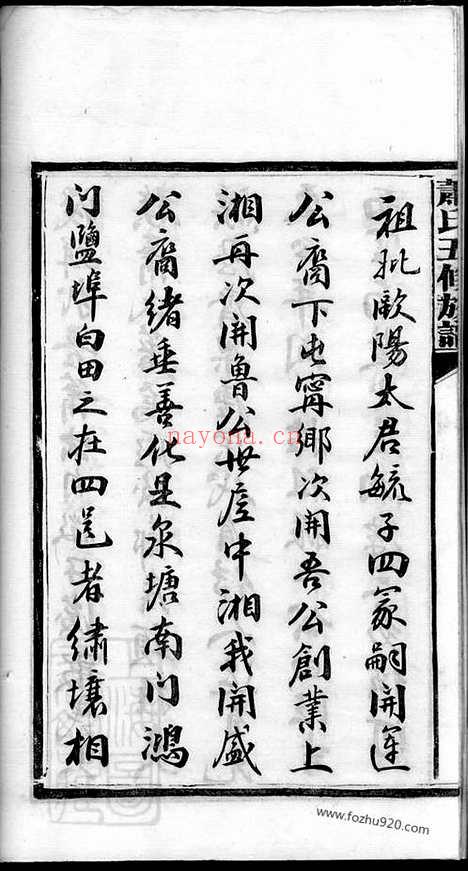 蕭氏五修族譜
祖妣歐陽太君毓子四冢嗣開運
公裔下屯甯鄉次開吾公創業上
湘再次開魯公世居中湘我開盛
公裔緒垂善化是泉塘南门鴻
门鹽埠白田之在四邑者繡壤相
nayona.cn
www.fozhu920.com